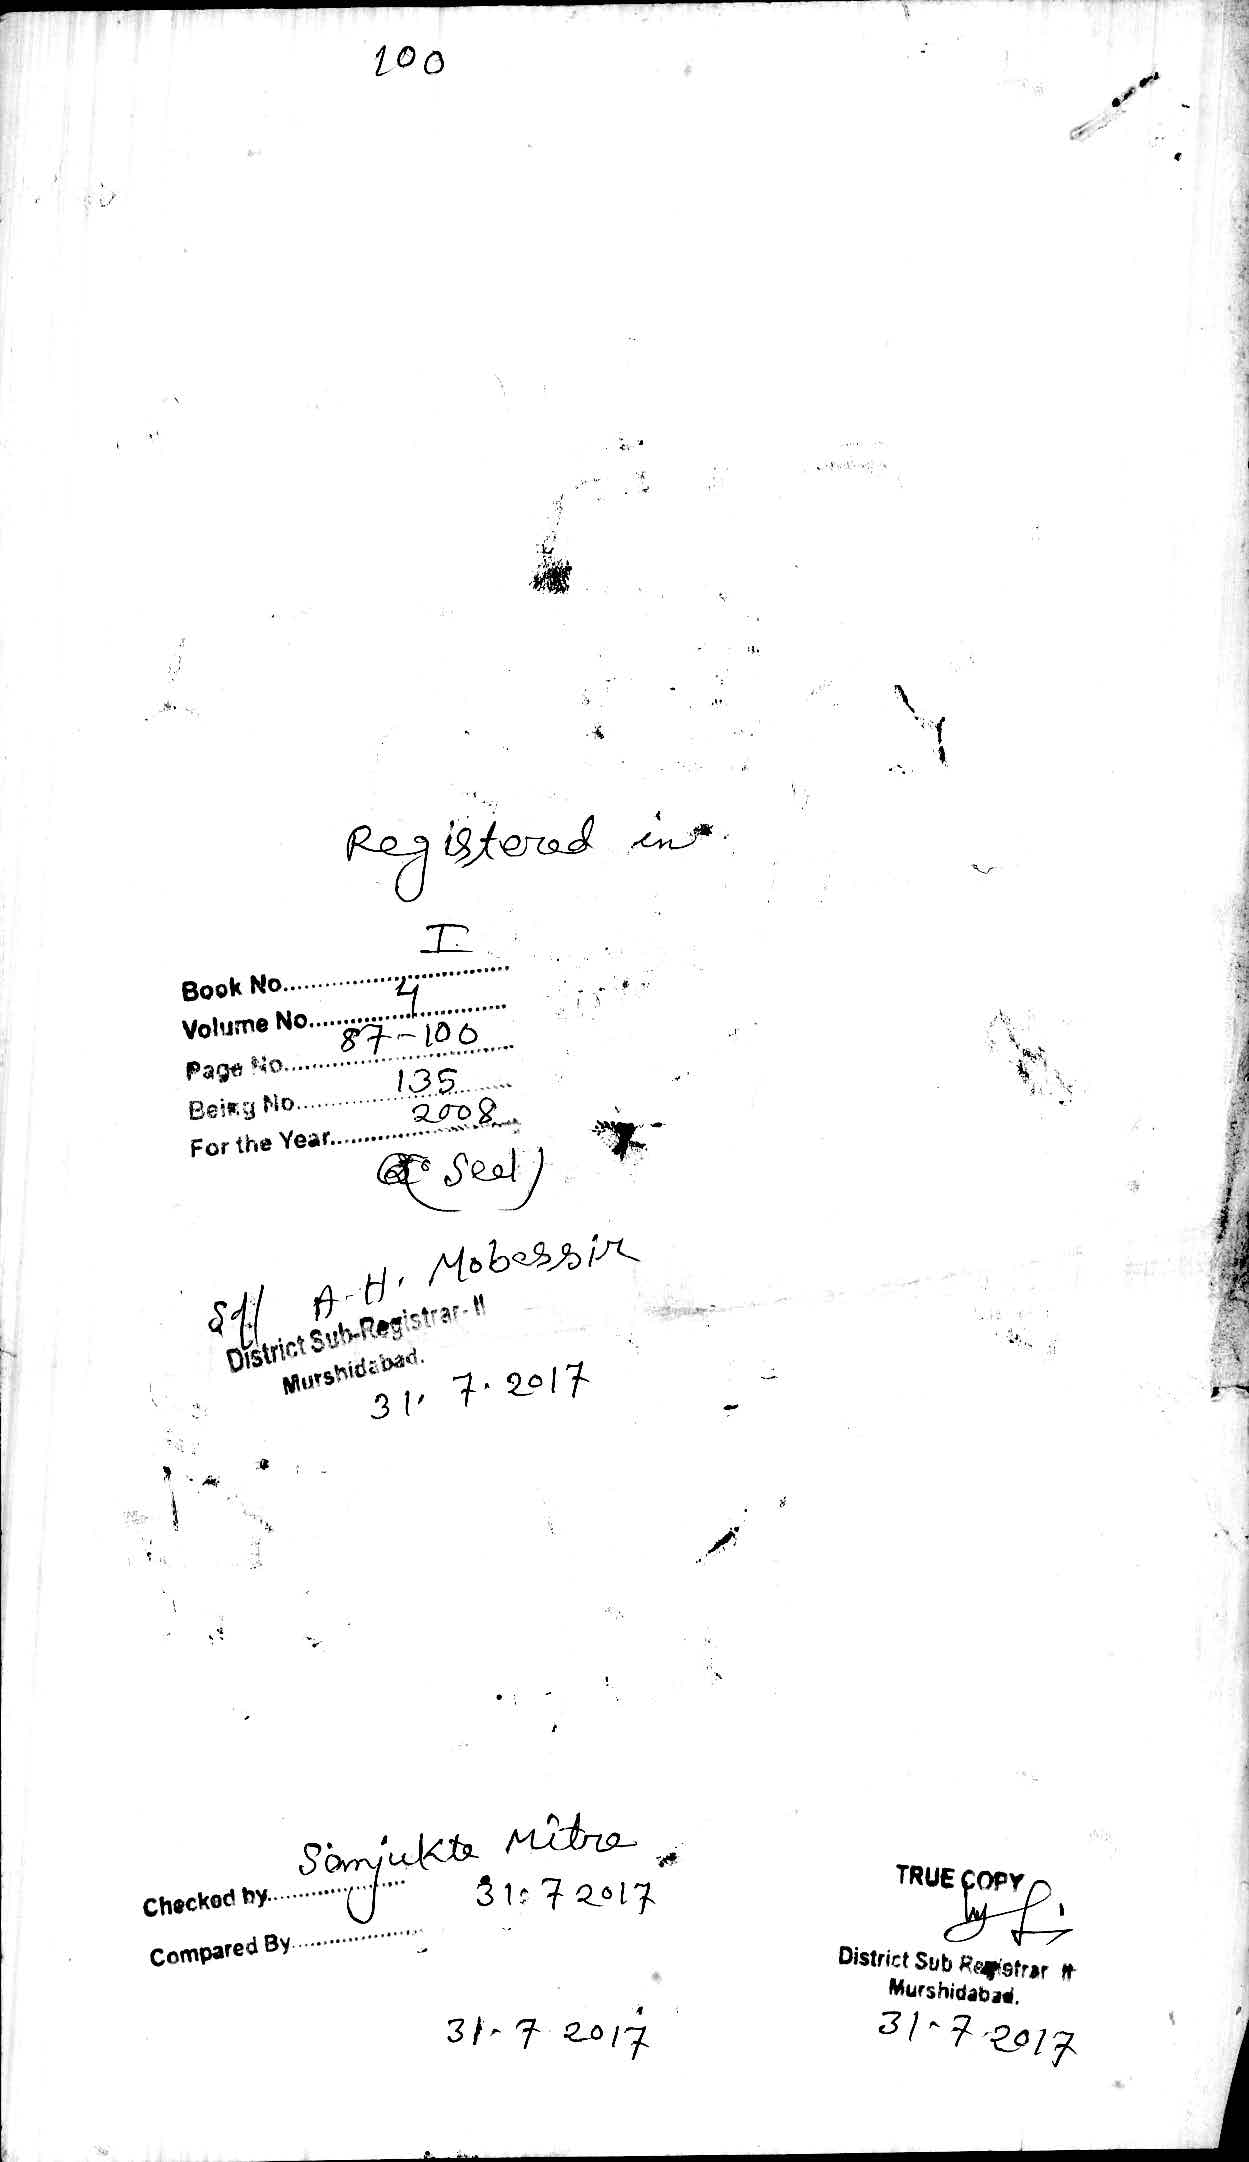 100
Registered in
Book No. I
Volume No. 4
Page No. 87-100
Being No. 135
For the Year. 2008
(Seal)
Sd/ A.H. Mobessir
District Sub-Registrar-II
Murshidabad.
31. 7. 2017
Checked by. Sanjukta Mitra
31.7 2017
Compared By.
31-7 2017
TRUE COPY
District Sub Registrar II
Murshidabad.
31-7-2017